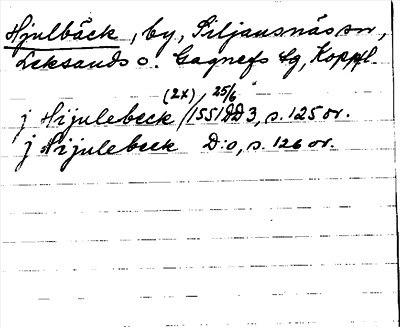 Hjulbäck, by, Siljansnäs sn,
Leksands o. Gagnefs tg, Koppfl.
(2x) 25/6
j Hijulebeck /1551 DD 3, s. 125 or.
j Hijulebeck D:o, s. 126 or.